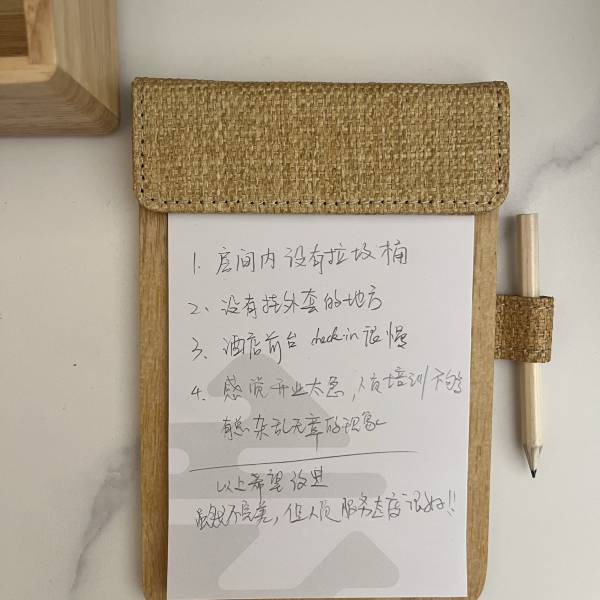 1. 房间内没有垃圾桶
2. 没有挂外套的地方
3. 酒店前台 check in 很慢
4. 感觉开业太急，人员培训不到
有点杂乱无章的现象
以上希望改进
虽然不完美，但人员服务态度很好！！